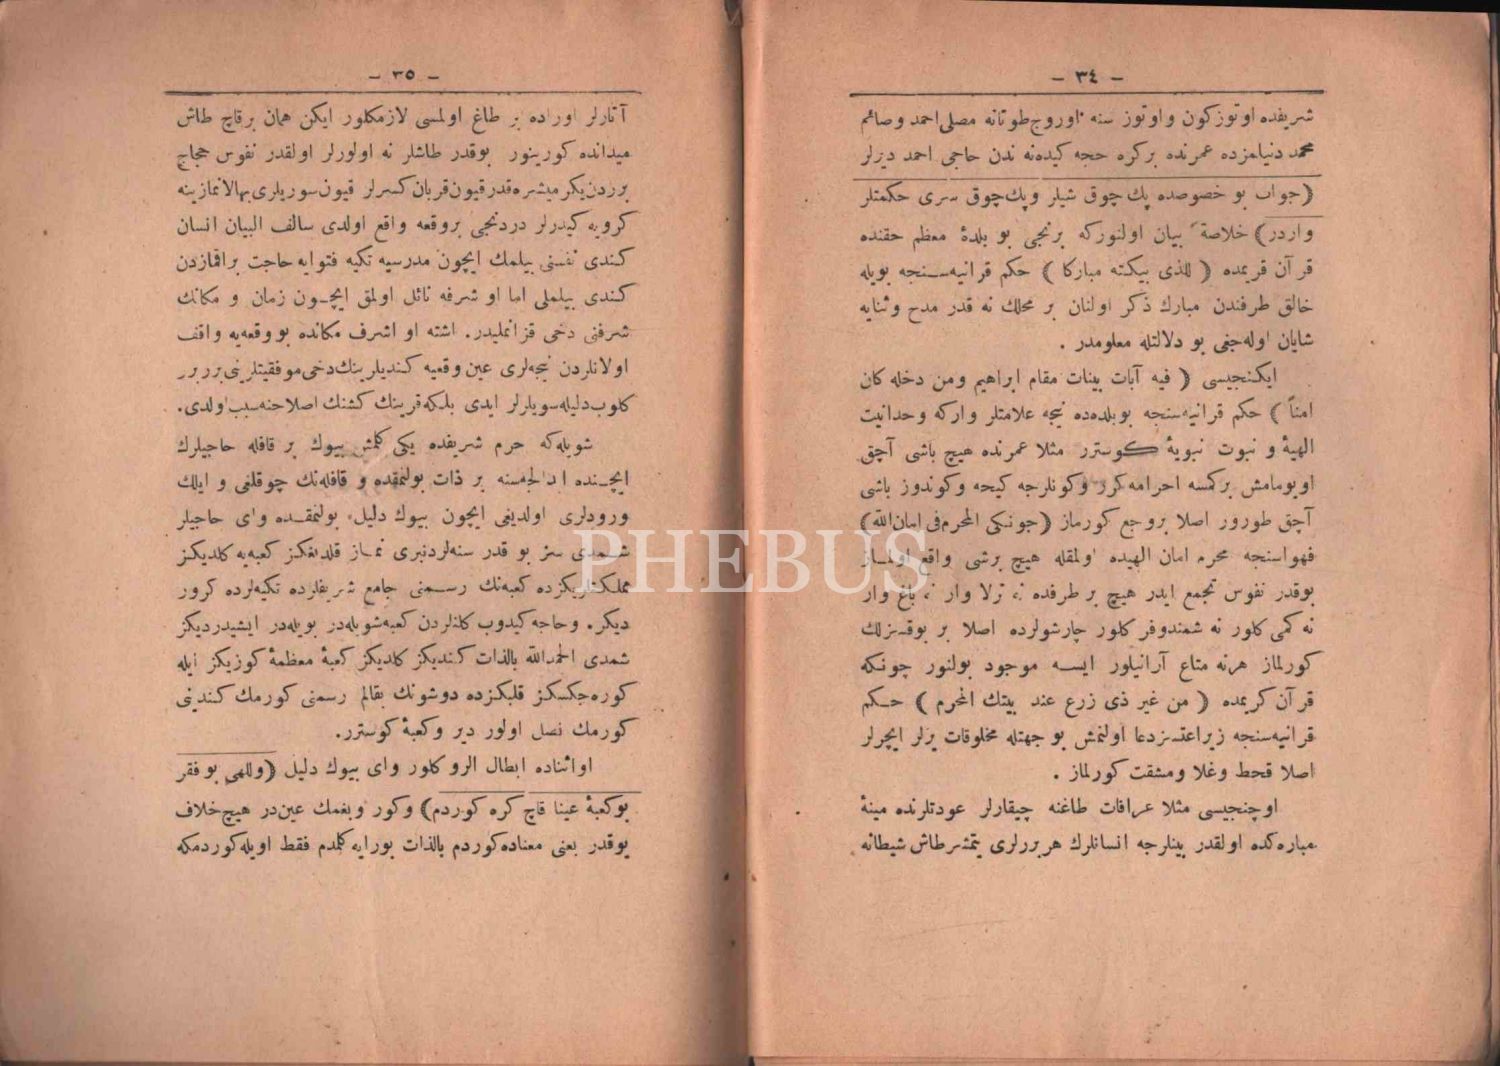 — ٣٤ —
شریفده اوتوزکون و اوتوز سنه اوروج طوتانه مصلی احمد و صائم
محمد دنیامزده عمرنده برکره حجه کیدەنه ندن حاجی احمد دیرلر
(جواب بو خصوصده پك چوق شیلر و پك چوق سری حکمتلر
واردر) خلاصة بیان اولنورکه برنجی بو بلدهٔ معظم حقنده
قرآن قریمده ( للذی ببکته مبارکا ) حکم قرانیه‌سنجه بویله
خالق طرفندن مبارك ذکر اولنان بر محلك نه قدر مدح و ثنایه
شایان اوله‌جغی بو دلالتله معلومدر .
ایکنجیسی ( فیه آبات بینات مقام ابراهیم ومن دخله کان
امناً ) حکم قرانیه‌سنجه بوبلده‌ده نیجه علامتلر وارکه وحدانیت
الهیهٔ و نبوت نبویهٔ کوسترر مثلا عمرنده هیچ باشی آچق
اویومامش برکسه احرامه‌کرر وکونلرجه کیجه وکوندوز باشی
آچق طورور اصلا بروجع کورماز (جونکی المحرم فی امان‌الله)
فهواسنجه محرم امان الهیده اولمقله هیچ برشی واقع اولماز
بوقدر نفوس تجمع ایدر هیچ بر طرفده نه ترلا وار نه باغ وار
نه کمی کلور نه شمندوفر کلور چارشولرده اصلا بر بوقسزلك
کورلماز هرنه متاع آرانیلور ایسه موجود بولنور چونکه
قرآن کریمده ( من غیر ذی زرع عند بیتك المحرم ) حکم
قرانیه‌سنجه زیراعتسزدعا اولنمش بو جهتله مخلوقات یرلر ایچرلر
اصلا قحط وغلا ومشقت کورلماز .
اوچنجیسی مثلا عرافات طاغنه چیقارلر عودتلرنده مینهٔ
مبارەکده اولقدر بینلرجه انسانلرك هر برلری یتمشرطاش شیطانه
— ٣٥ —
آتارلر اوراده بر طاغ اولمسی لازمکلور ایکن همان برقاچ طاش
میدانده کورینور بوقدر طاشلر نه اولورلر اولقدر نفوس حجاج
بردن‌یکرمیشره‌قدر قیون قربان کسرلر قیون سوریلری بهالانمازینه
کرویه کیدرلر دردنجی بروقعه واقع اولدی سالف البیان انسان
کندی نفسنی بیلمك ایچون مدرسیه تکیه فتوایه حاجت براقمازدن
کندی بیلملی اما او شرفه نائل اولمق ایچون زمان و مکانك
شرفنی دخی قزانملیدر. اشته او اشرف مکانده بووقعه‌یه واقف
اولانلردن نیجه‌لری عین وقعیه کندیلرینك دخی موفقیتلرینی برر برر
کلوب دلیله سویلرلر ایدی بلکه قرینك کشنك اصلاحنه سبب اولدی.
شویله‌که حرم شریفده یکی کلمش بیوك بر قافله حاجیلرك
ایچنده ابدالجه‌سنه بر ذات بولنمقده و قافله‌نك چوقلغی و ایلك
ورودلری اولدیغی ایچون بیوك دلیل بولنمقده وای حاجیلر
شمدی سز بو قدر سنه‌لردنبری نماز قلدیغکز کعبه‌یه کلدیکز
مملکتلریکزده کعبه‌نك رسمنی جامع شریفلرده تکیه‌لرده کرور
دیکز. وحاجه کیدوب کلنلردن کعبه شویله‌در بویله‌در ایشیدردیکز
شمدی الحمدالله بالذات کندیکز کلدیکز کعبهٔ معظمهٔ کوزیکز ایله
کوره‌جکسکز قلبکزده دوشونك بقالم رسمنی کورمك کندینی
کورمك نصل اولور دیر وکعبهٔ کوسترر.
اواثناده ابطال الرو کلور وای بیوك دلیل (وللهی بوفقر
بوکعبهٔ عینا قاچ کره کوردم) وکور وبغمك عین‌در هیچ خلاف
یوقدر یعنی معناده‌کوردم بالذات بورایه کلمدم فقط اویله کوردمکه
PHEBUS